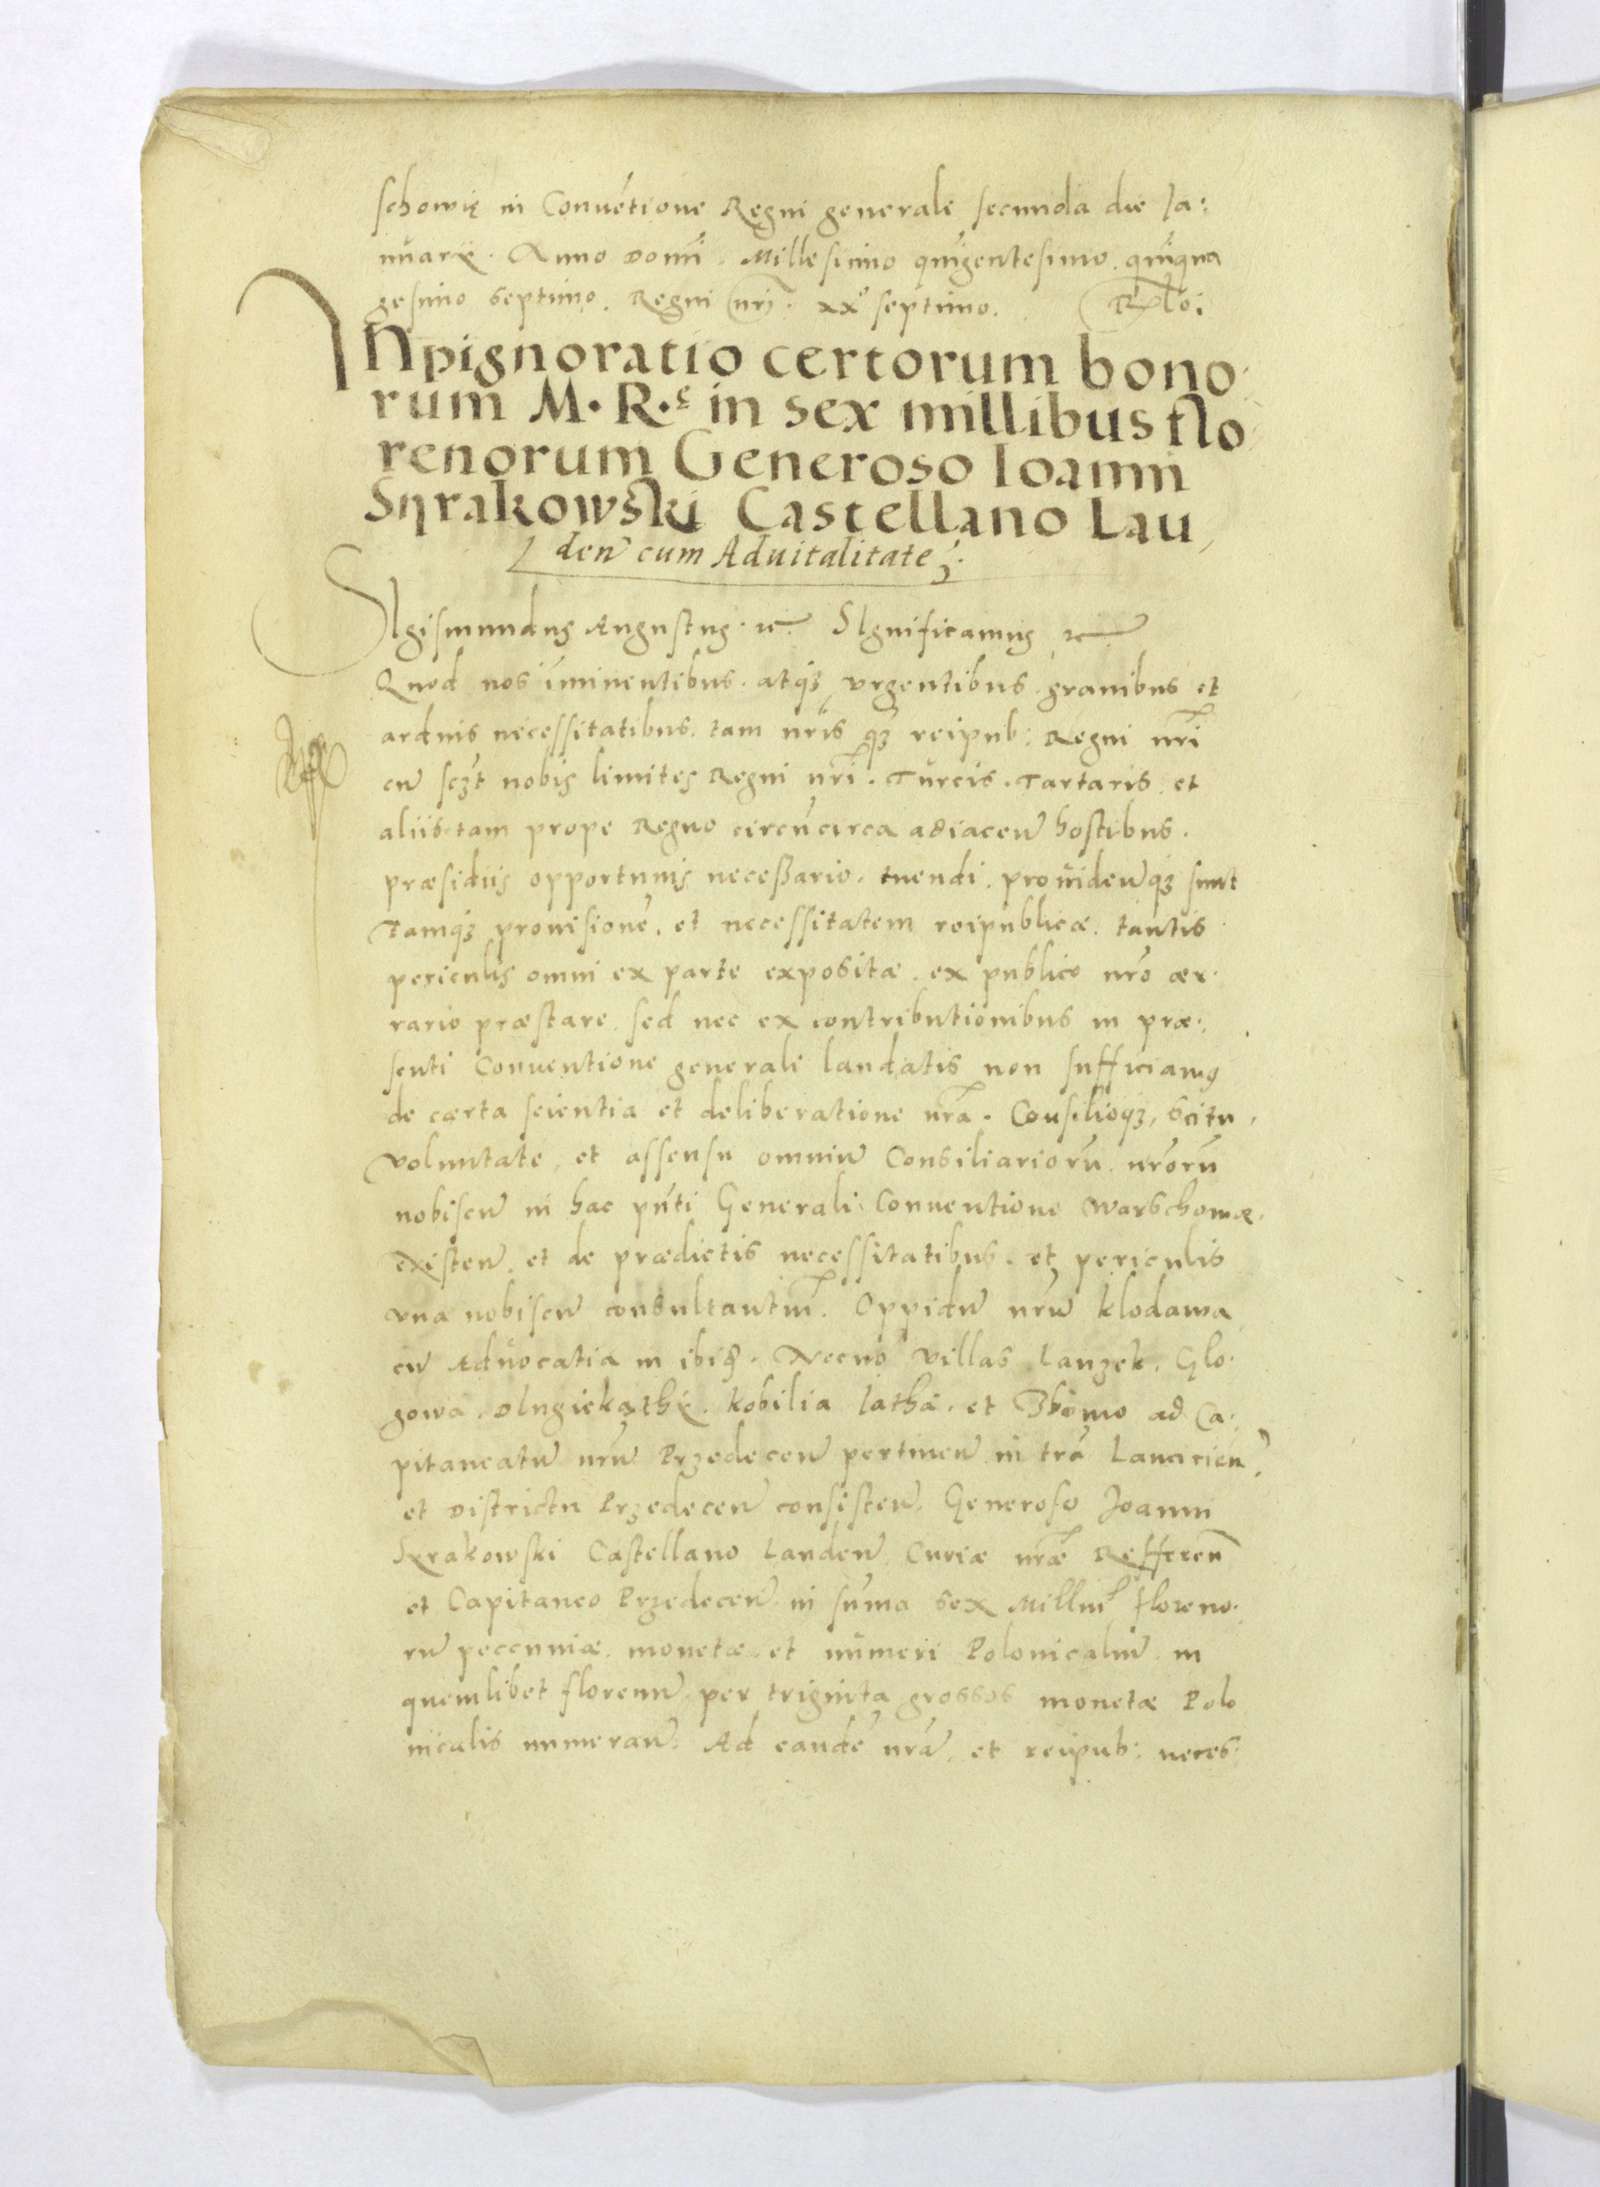 schowię in Convētione Regni generale secunda die Ja:
nuarÿ. Anno domi. Millesimo quīgentesimo. quīqua
gesimo septimo. Regni nri. xxº septimo.
Inpignoratio certorum bono:
rum M. R.ę in sex millibus flo
renorum Generoso Ioanni
Syrakowski Castellano Lan,
den̄ cum Aduitalitate
SIgismundus Augustus. SIgnificamus
Quod nos im̄inentibus. atq3 vrgentibus grauibus et
arduis necessitatibus. tam nr̄is q3 reipub: Regni nr̄i
cū sc3t nobis limites Regni nr̄i. Turcis. Tartaris et
aliis tam prope Regno circūcirca adiacen̄ hostibus.
præsidiis opportunis necessario. tuendi. prouiden̄q3 sunt
Tamq3 prouisionē. et necessitatem reipublicæ. tantis
periculis omni ex parte expositæ. ex publico nr̄o ær:
rario præstare, sed nec ex contributionibus in præ:
senti Conuentione generale laudatis non sufficiamus
de cærta scientia et deliberatione nr̄a. Consilioq3, scitu,
voluntate, et assensu omniū Consiliariorū nr̄orū
nobiscū in hac pn̄ti Generali Conuentione Warschowiæ.
existen̄. et de prædictis necessitatibus. et periculis
vna nobiscū consultantiū. Oppidū nr̄ū klodawa
cū Aduocatia in ibid. Necnō villas Lanzek. Glo:
gowa. Dlugiekąthÿ. kobilia latha. et ad Ca:
pitaneatū nr̄ū Przedecen̄ pertinen̄ in tr̄a Lancicien̄
et districtu Przedecen̄ consisten̄. Generoso Joanni
Syrakowski Castellano Landen̄ Curiæ nr̄æ Refferen̄
et Capitaneo Przedecen̄. in sum̄a sex Milliū floreno.
rū peccuniæ. monetæ. et numeri Polonicaliū. in
quemlibet florenū. per triginta grossos monetæ Polo
nicalis numeran̄. Ad eandē nr̄ā, et reipub: neces: